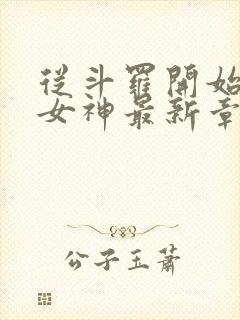 從斗羅開始
女神最新章
公子玉蕭